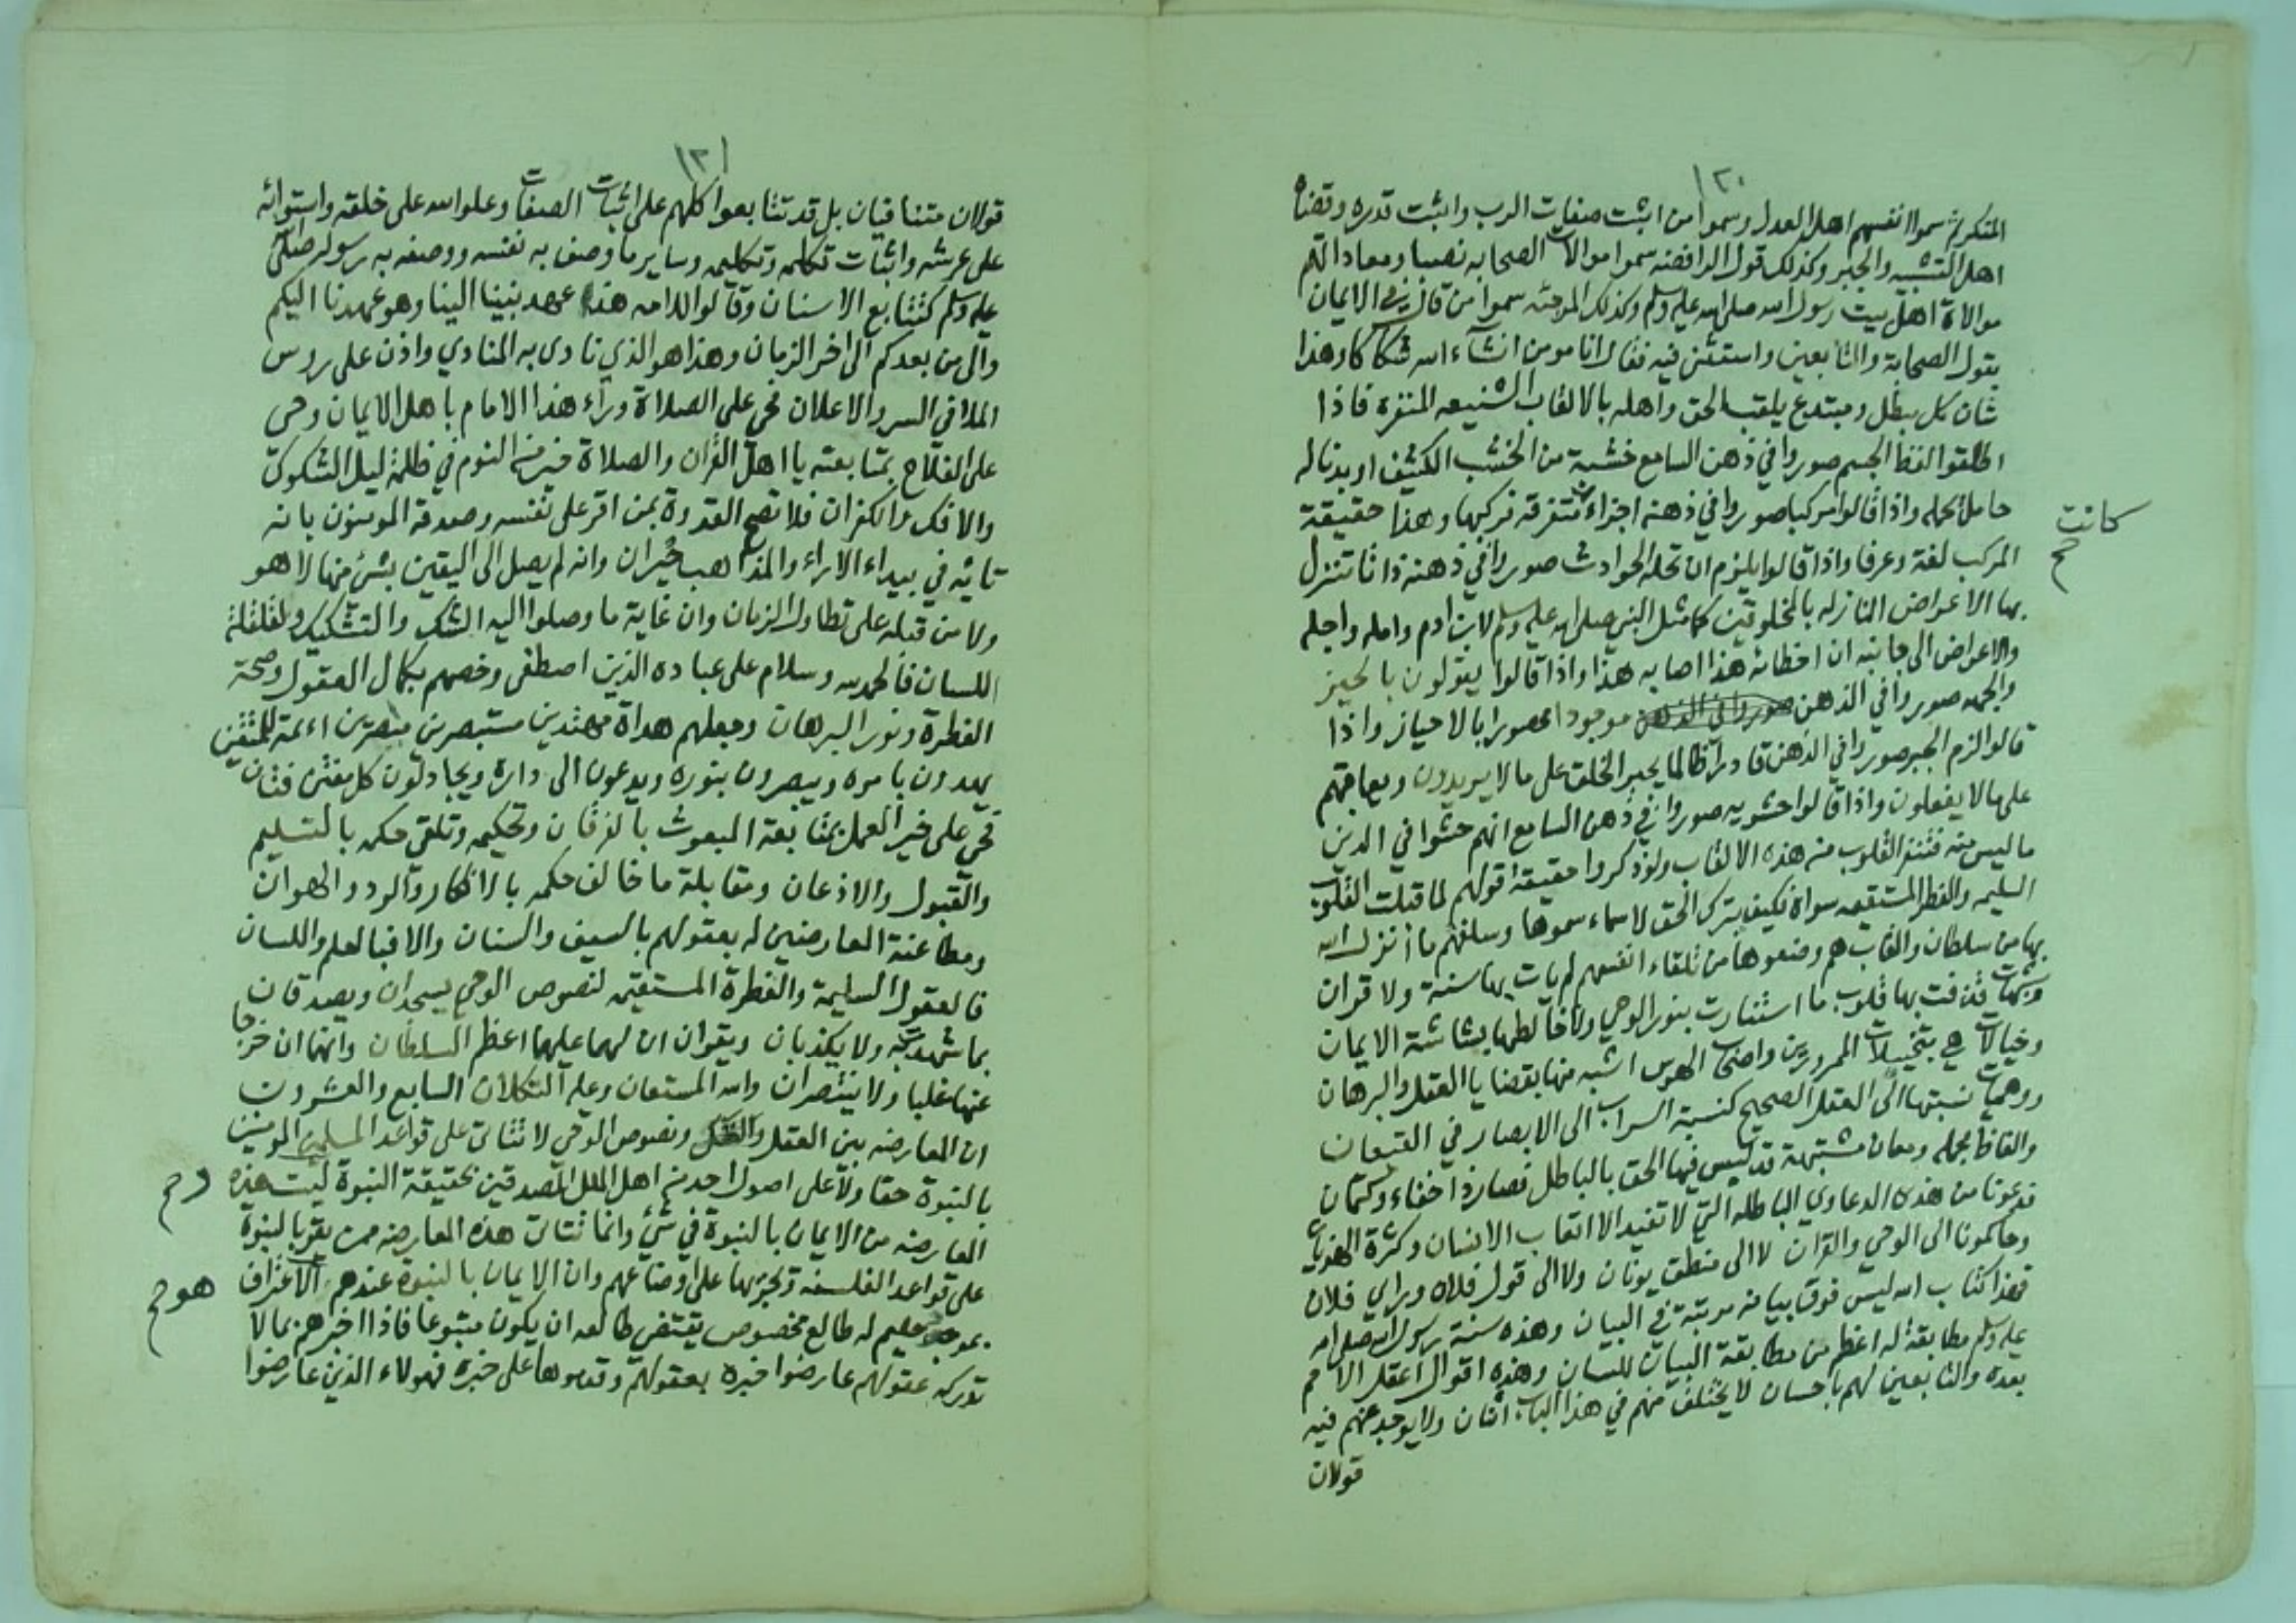 ١٢٠
المنكر ثم سموا انفسهم اهل العدل وسموا من اثبت صفات الرب واثبت قدره وقضاه
اهل التشبيه والجبر وكذلك قول الرافضه سموا موالات الصحابه نصبا ومعاداتهم
موالاة اهل بيت رسول الله صلى الله عليه وسلم وكذلك المرجئه سموا من قال في الايمان
بقول الصحابة والتابعين واستثنى فيه فقال انا مومن انشآء الله شكاكا وهذا
شان كل مبطل ومبتدع يلقب الحق واهله بالالقاب الشنيعه المنفره فاذا
اطلقوا لفظ الجسم صوروا في ذهن السامع خشبة من الخشب الكثيف او بدنا له
حامل يحمله واذا قالوا مركبا صوروا في ذهنه اجزاء متفرقه فركبها وهذا حقيقة
كانت
المركب لغة وعرفا واذا قالوا يلزم ان تحله الحوادث صوروا في ذهنه ذاتا تتنزل
بها الاعراض النازله بالمخلوقين كما مثل النبي صلى الله عليه وسلم لابن ادم وامله واجله
والاعراض الى جانبه ان اخطائه هذا اصابه هذا واذا قالوا يقولون بالحيز
والجهه صوروا في الذهن موجودا محصورا بالاحياز واذا
قالوا لزم الجبر صوروا في الذهن قادرا ظالما يجبر الخلق على ما لا يريدون ويعاقبهم
على ما لا يفعلون واذا قالوا حشويه صوروا في ذهن السامع انهم حشوا في الدين
ما ليس منه فتنفر القلوب من هذه الالقاب ولو ذكروا حقيقة قولهم لما قبلت القلوب
السليمه والفطر المستقيمه سواه فكيف يترك الحق لاسماء سموها وسلفهم ما أنزل الله
بها من سلطان والقاب هم وضعوها من تلقاء انفسهم لم يات بها سنة ولا قران
وشبهات قذفت بها قلوب ما استنارت بنور الوحي ولا خالطها بشاشة الايمان
وخيالات هي بتخييلات الممرورين واصحاب الهوس اشبه منها بقضايا العقل والبرهان
ووهميات نسبتها الى العقل الصحيح كنسبة السراب الى الابصار في القيعان
والفاظ مجمله ومعان مشتبهة قد لبس فيها الحق بالباطل فصار ذا خفاء وكتمان
فدعونا من هذه الدعاوي الباطله التي لا تفيد الا اتعاب الانسان وكثرة الهذيان
وحاكمونا الى الوحي والقران لا الى منطق يونان ولا الى قول فلان وراي فلان
فهذا كتاب الله ليس فوق بيانه مرتبة في البيان وهذه سنة رسول الله صلى الله
عليه وسلم مطابقة له اعظم من مطابقة البيان للسان وهذه اقوال اعقل الامم
بعده والتابعين لهم باحسان لا يختلف منهم في هذا الباب اثنان ولا يوجد عنهم فيه
قولان
١٢١
قولان متنافيان بل قد تتابعوا كلهم على اثبات الصفات وعلو الله على خلقه واستوائه
على عرشه واثبات تكلمه وتكليمه وساير ما وصف به نفسه ووصفه به رسوله صلى الله
عليه وسلم كتتابع الاسنان وقالوا للامه هذا عهد نبينا الينا وهو عهدنا اليكم
والى من بعدكم الى اخر الزمان وهذا هو الذي نادى به المنادي واذن على روس
الملا في السر والاعلان فحي على الصلاة ورآء هذا الامام يا اهل الايمان وحي
على الفلاح بمتابعته يا اهل القران والصلاة خير من النوم في ظلمة ليل الشكوك
والافك والكفران فلا تصح القدوة بمن اقر على نفسه وصدقه المومنون بانه
تائه في بيداء الاراء والمذاهب حيران وانه لم يصل الى اليقين بشئ منها لا هو
ولا من قبله على تطاول الزمان وان غاية ما وصلوا اليه الشك والتشكيك ولقلقلة
اللسان فالحمد لله وسلام على عباده الذين اصطفى وخصهم بكمال العقول وصحة
الفطرة ونور البرهان وجعلهم هداة مهتدين مستبصرين مبصرين ائمة للمتقين
يهدون بامره ويبصرون بنوره ويدعون الى داره ويجادلون كل مفتن فتان
فحي على خير العمل بمتابعة المبعوث بالفرقان وتحكيمه وتلقي حكمه بالتسليم
والقبول والاذعان ومقابلة ما خالف حكمه بالانكار والرد والهوان
ومطاعنة المعارضين له بعقولهم بالسيف والسنان والا فبالعلم واللسان
فالعقول السليمة والفطرة المستقيمه لنصوص الوحي يسجدان ويصدقان
بما شهدت به ولا يكذبان ويقران ان لهما عليهما اعظم السلطان وانهما ان خرجا
عنها غلبا ولا ينتصران والله المستعان وعليه التكلان السابع والعشرون
ان المعارضه بين العقل ونصوص الوحي لا تتاتى على قواعد المسلمين المومنين
بالنبوة حقا ولا على اصول احد من اهل الملل المصدقين بحقيقة النبوة ليست هذه
وح
المعارضه من الايمان بالنبوة في شئ وانما تتاتى هذه المعارضه ممن يقر بالنبوة
على قواعد الفلسفه وتجريها على اوضاعهم وان الايمان بالنبوة عندهم الاعتراف
هو ح
بموجود حكيم له طالع مخصوص يقتضي طالعه ان يكون متبوعا فاذا اخبرهم بما لا
تدركه عقولهم عارضوا خبره بعقولهم وقدموها على خبره فهولاء الذين عارضوا